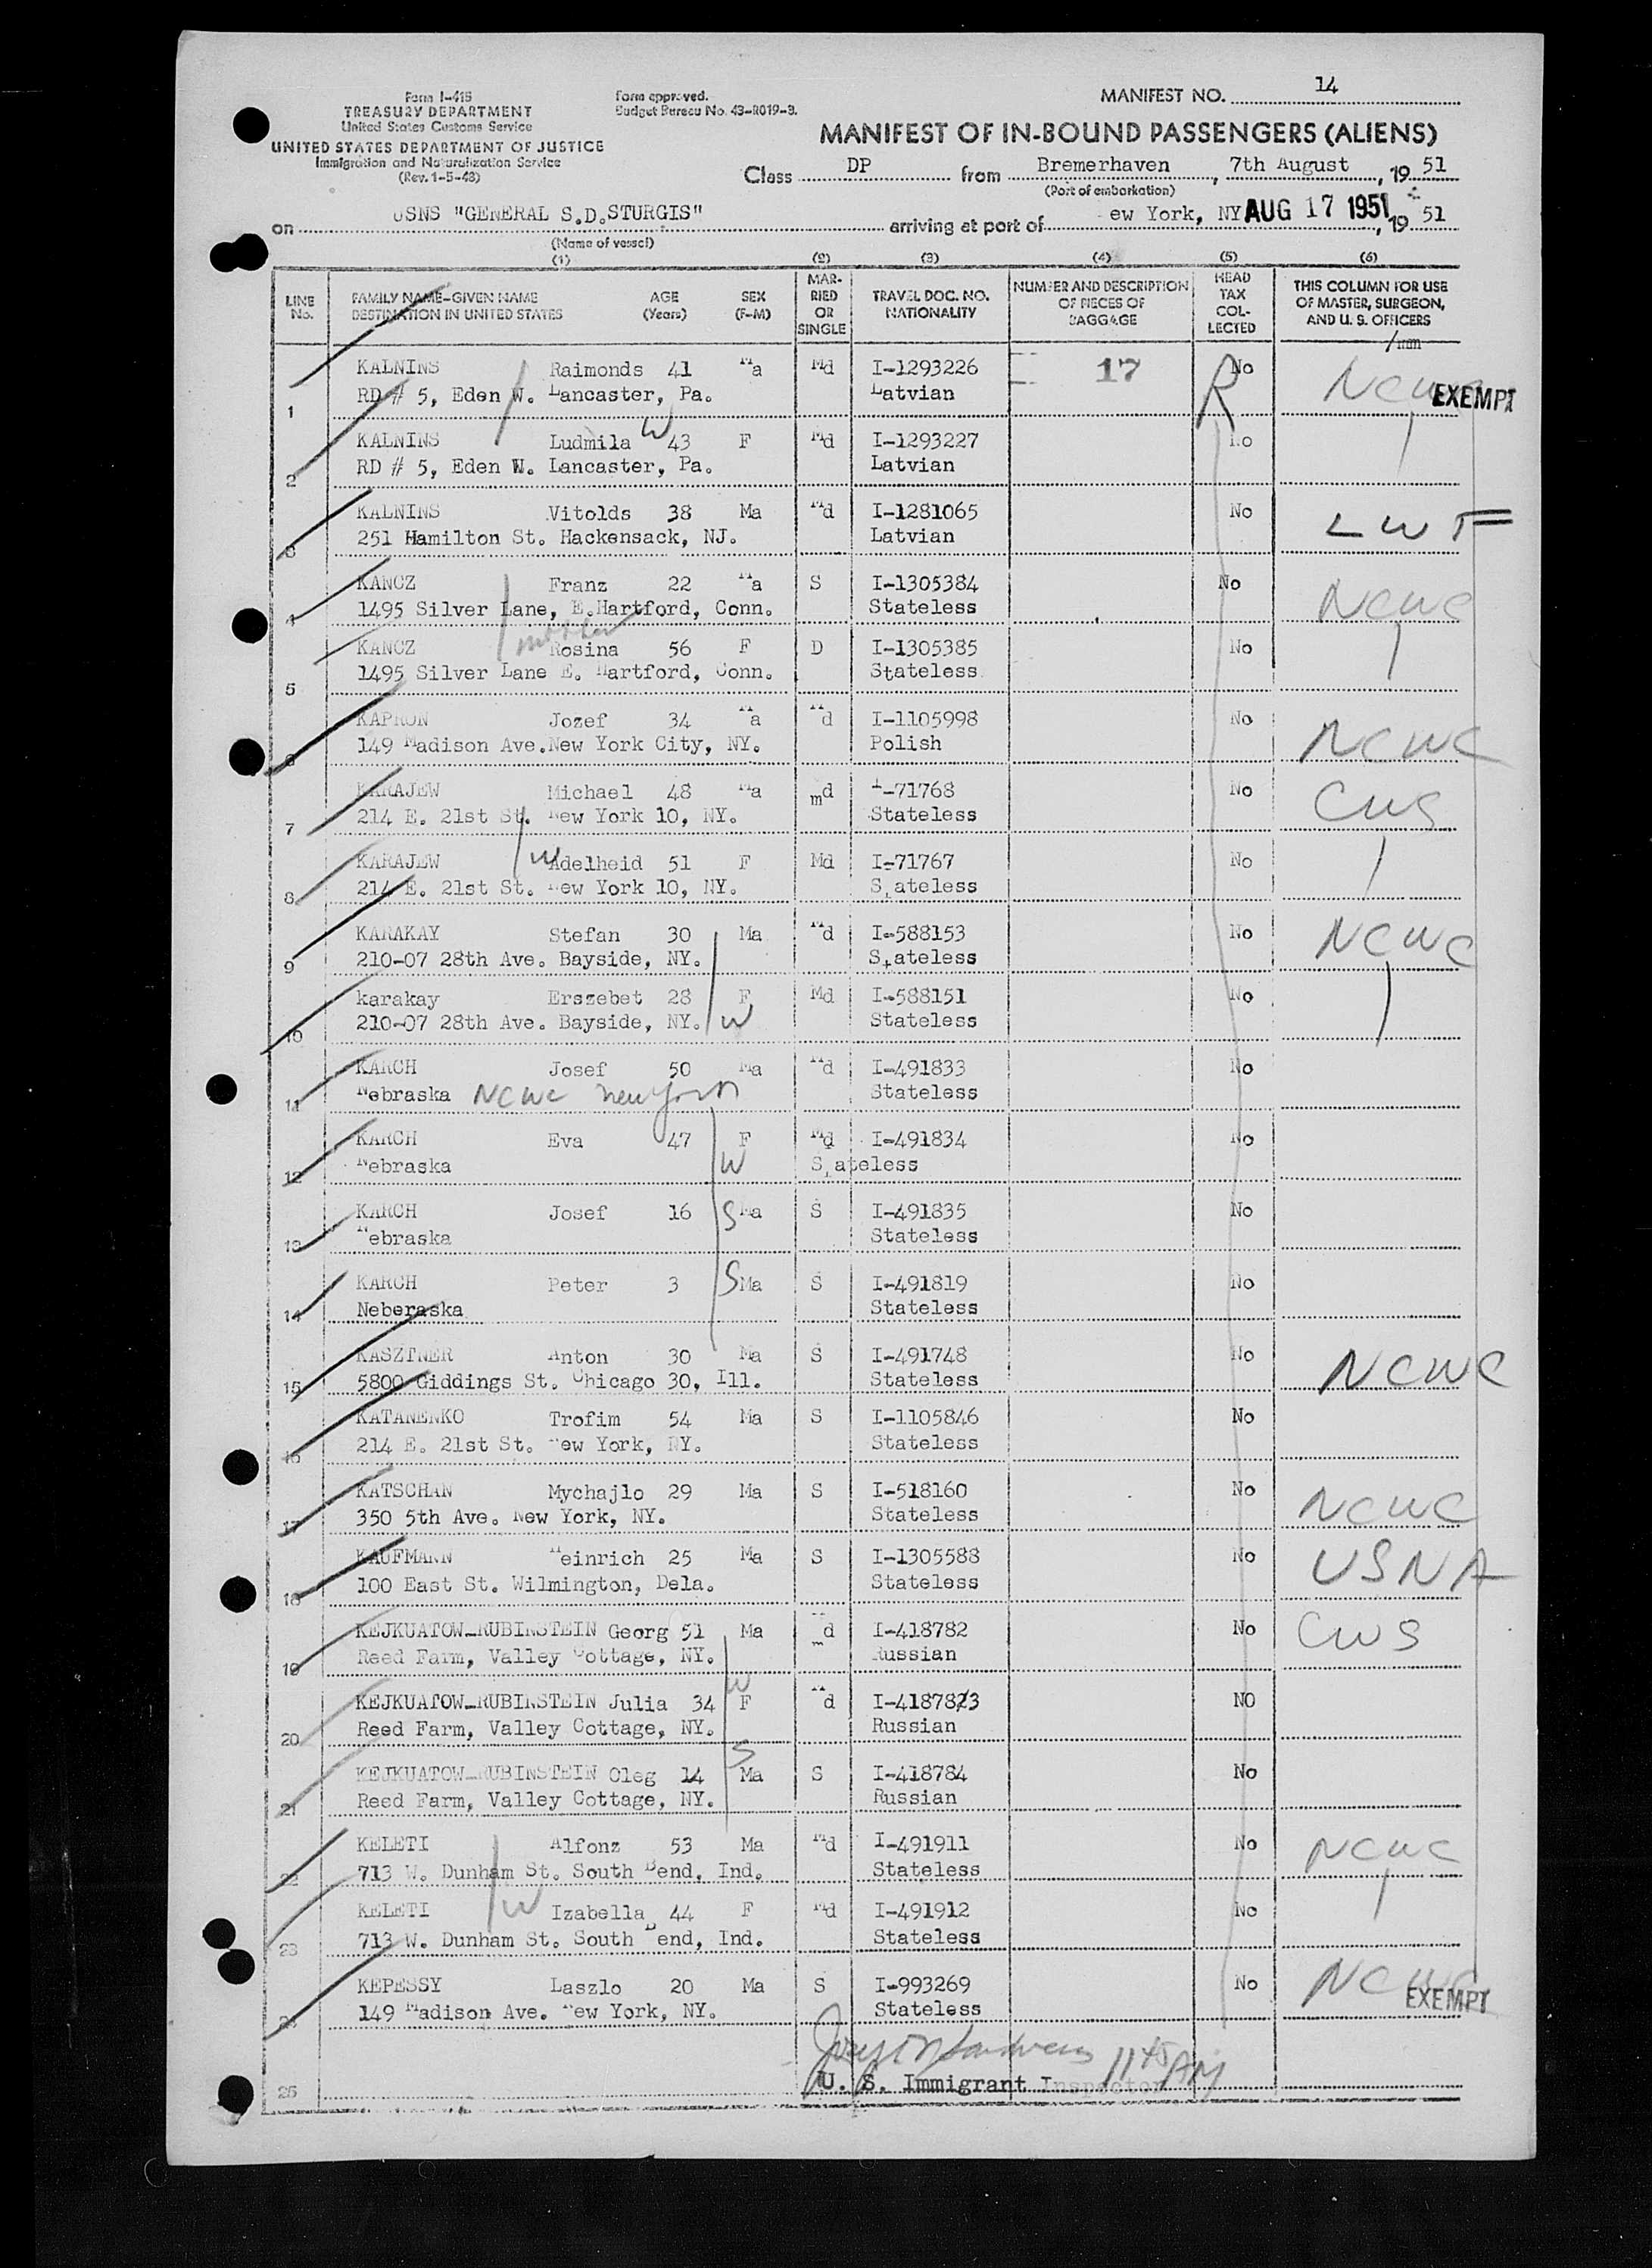 Form I-415
TREASURY DEPARTMENT
United States Customs Service
UNITED STATES DEPARTMENT OF JUSTICE
Immigration and Naturalization Service
(Rev. 1-5-48)
Form approved.
Budget Bureau No. 43-R019-3.
MANIFEST NO. 14
MANIFEST OF IN-BOUND PASSENGERS (ALIENS)
Class DP from Bremerhaven, 7th August, 19 51
(Port of embarkation)
on USNS "GENERAL S.D.STURGIS" arriving at port of ew York, NY AUG 17 1951, 19 51
(Name of vessel)
(1) (2) (3) (4) (5) (6)
LINE No. FAMILY NAME-GIVEN NAME DESTINATION IN UNITED STATES AGE (Years) SEX (F-M) MARRIED OR SINGLE TRAVEL DOC. NO. NATIONALITY NUMBER AND DESCRIPTION OF PIECES OF BAGGAGE HEAD TAX COLLECTED THIS COLUMN FOR USE OF MASTER, SURGEON, AND U. S. OFFICERS
KALNINS Raimonds 41 Ma Md I-1293226 17 No NCWC EXEMPT
1 RD # 5, Eden W. Lancaster, Pa. Latvian R
KALNINS Ludmila W 43 F Md I-1293227 No
2 RD # 5, Eden W. Lancaster, Pa. Latvian
KALNINS Vitolds 38 Ma Md I-1281065 No LWF
3 251 Hamilton St. Hackensack, NJ. Latvian
KANCZ Franz 22 Ma S I-1305384 No NCWC
4 1495 Silver Lane, E.Hartford, Conn. Stateless
mother
KANCZ Rosina 56 F D I-1305385 No
5 1495 Silver Lane E. Hartford, Conn. Stateless
KAPRON Jozef 34 Ma Md I-1105998 No NCWC
6 149 Madison Ave.New York City, NY. Polish
KARAJEW Michael 48 Ma md I-71768 No CWS
7 214 E. 21st St. New York 10, NY. Stateless
KARAJEW W Adelheid 51 F Md I-71767 No
8 214 E. 21st St. New York 10, NY. Stateless
KARAKAY Stefan 30 Ma Md I-588153 No NCWC
9 210-07 28th Ave. Bayside, NY. Stateless
karakay Erszebet 28 F Md I-588151 No
10 210-07 28th Ave. Bayside, NY. W Stateless
KARCH Josef 50 Ma Md I-491833 No
11 Nebraska NCWC New York Stateless
KARCH Eva 47 F Md I-491834 No
12 Nebraska W Stateless
KARCH Josef 16 S Ma S I-491835 No
13 Nebraska Stateless
KARCH Peter 3 S Ma S I-491819 No
14 Neberaska Stateless
KASZTNER Anton 30 Ma S I-491748 No NCWC
15 5800 Giddings St. Chicago 30, Ill. Stateless
KATANENKO Trofim 54 Ma S I-1105846 No
16 214 E. 21st St. New York, NY. Stateless
KATSCHAN Mychajlo 29 Ma S I-518160 No NCWC
17 350 5th Ave. New York, NY. Stateless
KAUFMANN Heinrich 25 Ma S I-1305588 No USNA
18 100 East St. Wilmington, Dela. Stateless
KEJKUATOW-RUBINSTEIN Georg 51 Ma md I-418782 No CWS
19 Reed Farm, Valley Cottage, NY. Russian
W
KEJKUATOW-RUBINSTEIN Julia 34 F Md I-418783 NO
20 Reed Farm, Valley Cottage, NY. Russian
S
KEJKUATOW-RUBINSTEIN Oleg 14 Ma S I-418784 No
21 Reed Farm, Valley Cottage, NY. Russian
KELETI Alfonz 53 Ma Md I-491911 No NCWC
22 713 W. Dunham St. South Bend, Ind. Stateless
KELETI W Izabella 44 F Md I-491912 No
23 713 W. Dunham St. South Bend, Ind. Stateless
KEPESSY Laszlo 20 Ma S I-993269 No NCWC EXEMPT
24 149 Madison Ave. New York, NY. Stateless
11 45 AM
25 U. S. Immigrant Inspector